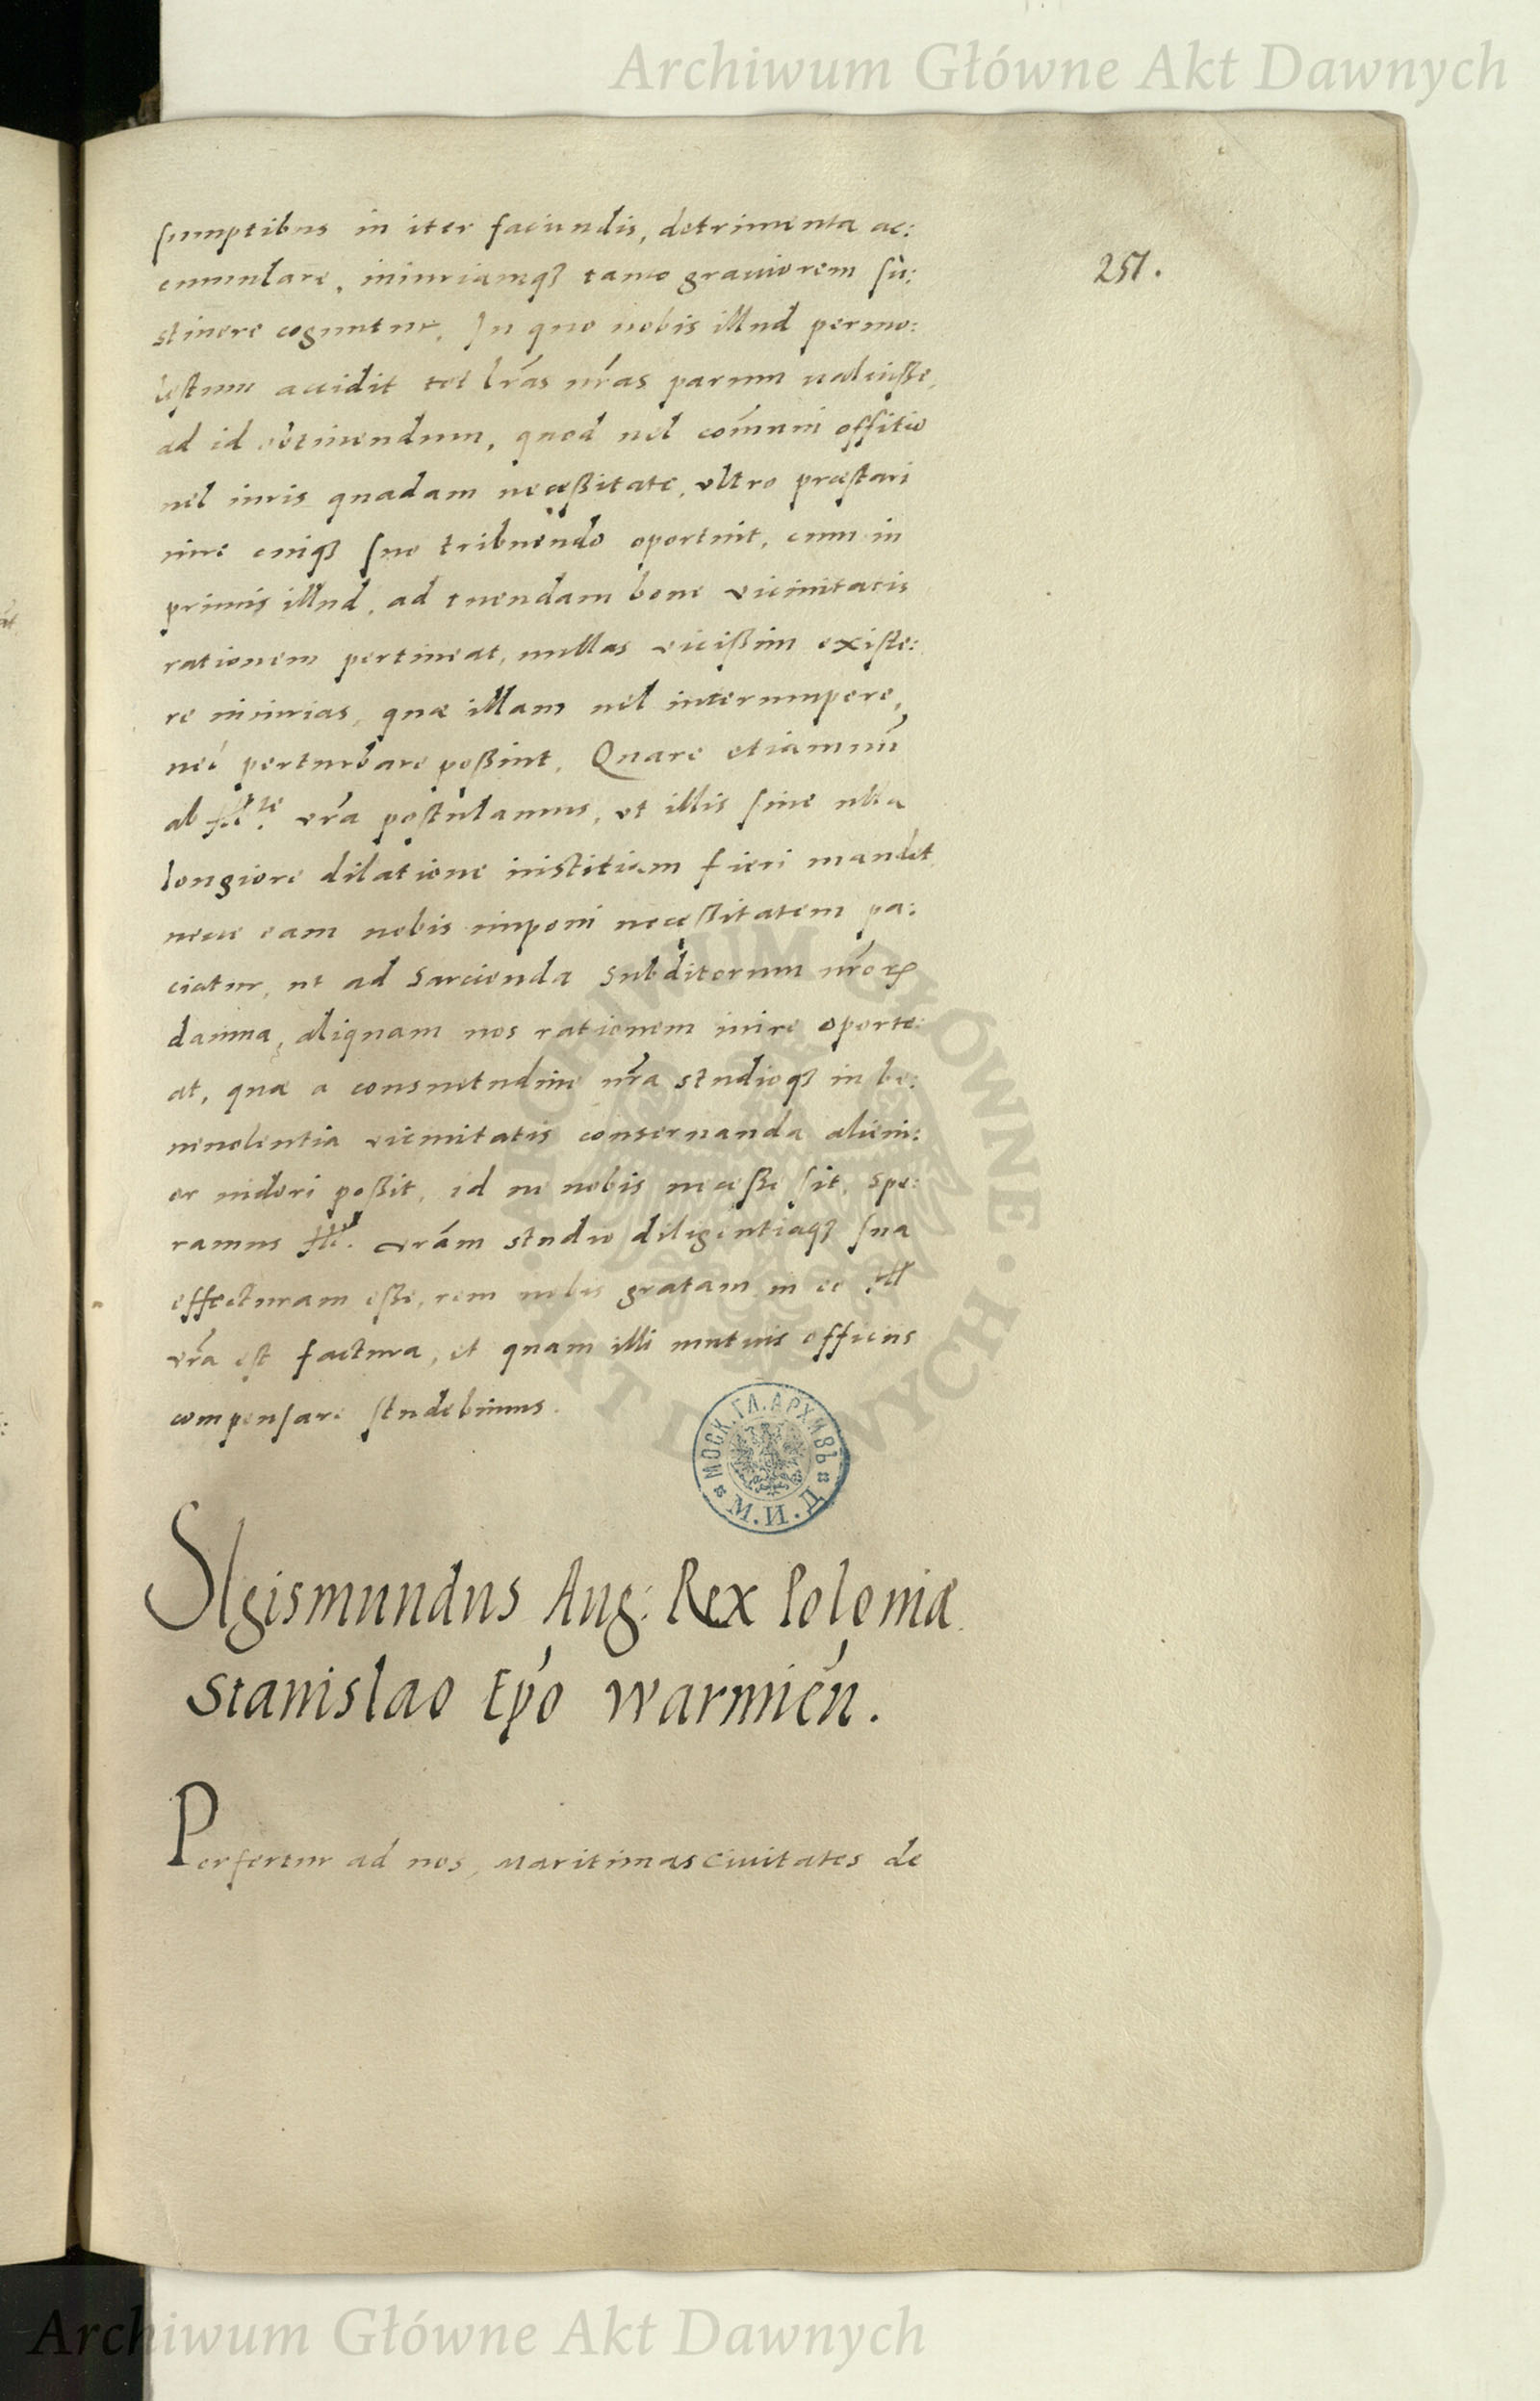 Archiwum Główne Akt Dawnych
251.
sumptibus in iter faciundis, detrimenta ac:
cumulare, iniuriamqȝ tanto grauiorem su:
stinere coguntur. In quo nobis illud permo:
lestum accidit tot lras nras parum ualuisse,
ad id obtinendum, quod uel comuni offitio
uel iuris quadam necessitate, vltro præstari
iure cuiqȝ suo tribuendo oportuit, cum in
primis illud, ad tuendam bone vicinitatis
rationem pertineat, nullas vicissim existe:
re iniurias, quæ illam uel interrumpere,
uel perturbare possint. Quare etiamnu
ab Illte vra postulamus, vt illis sine ulla
longiore dilatione iustitiam fieri mandet
neue eam nobis imponi necessitatem pa:
ciatur, ut ad sarcienda subditorum nrorꝫ
damna, aliquam nos rationem inire oporte:
at, quæ a consuetudine nra studioqȝ in be:
neuolentia vicinitatis conseruanda alieni:
or uideri possit, id ne nobis necesse sit, spe:
ramus Ill. vram studio diligentiaqȝ sua
effecturam esse, rem nobis gratam in eo Ill
vra est factura, et quam illi mutuis officiis
compensare studebimus.
МОСК. ГЛ. АРХИВЪ
М. И. Д
SIgismundus Aug: Rex Poloniæ
Stanislao Epo Warmien.
Perfertur ad nos, Maritimas ciuitates de
ARCHIWUM GŁÓWNE AKT DAWNYCH
Archiwum Główne Akt Dawnych